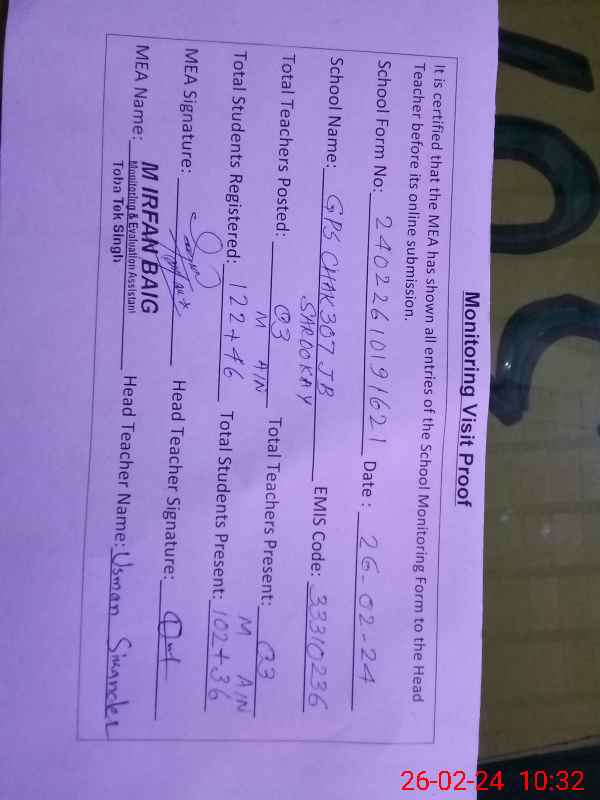 Monitoring Visit Proof
It is certified that the MEA has shown all entries of the School Monitoring Form to the Head
Teacher before its online submission.
School Form No: 24022610191621 Date : 26-02-24
School Name: GPS CHAK 307 JB EMIS Code: 33310236
SAROOKAY
Total Teachers Posted: 03 Total Teachers Present: 03
M AIN M AIN
Total Students Registered: 122+46 Total Students Present: 102+36
MEA Signature: Head Teacher Signature:
MEA Name: M IRFAN BAIG Head Teacher Name: Usman Sikander
Monitoring & Evaluation Assistant
Toba Tek Singh
26-02-24 10:32